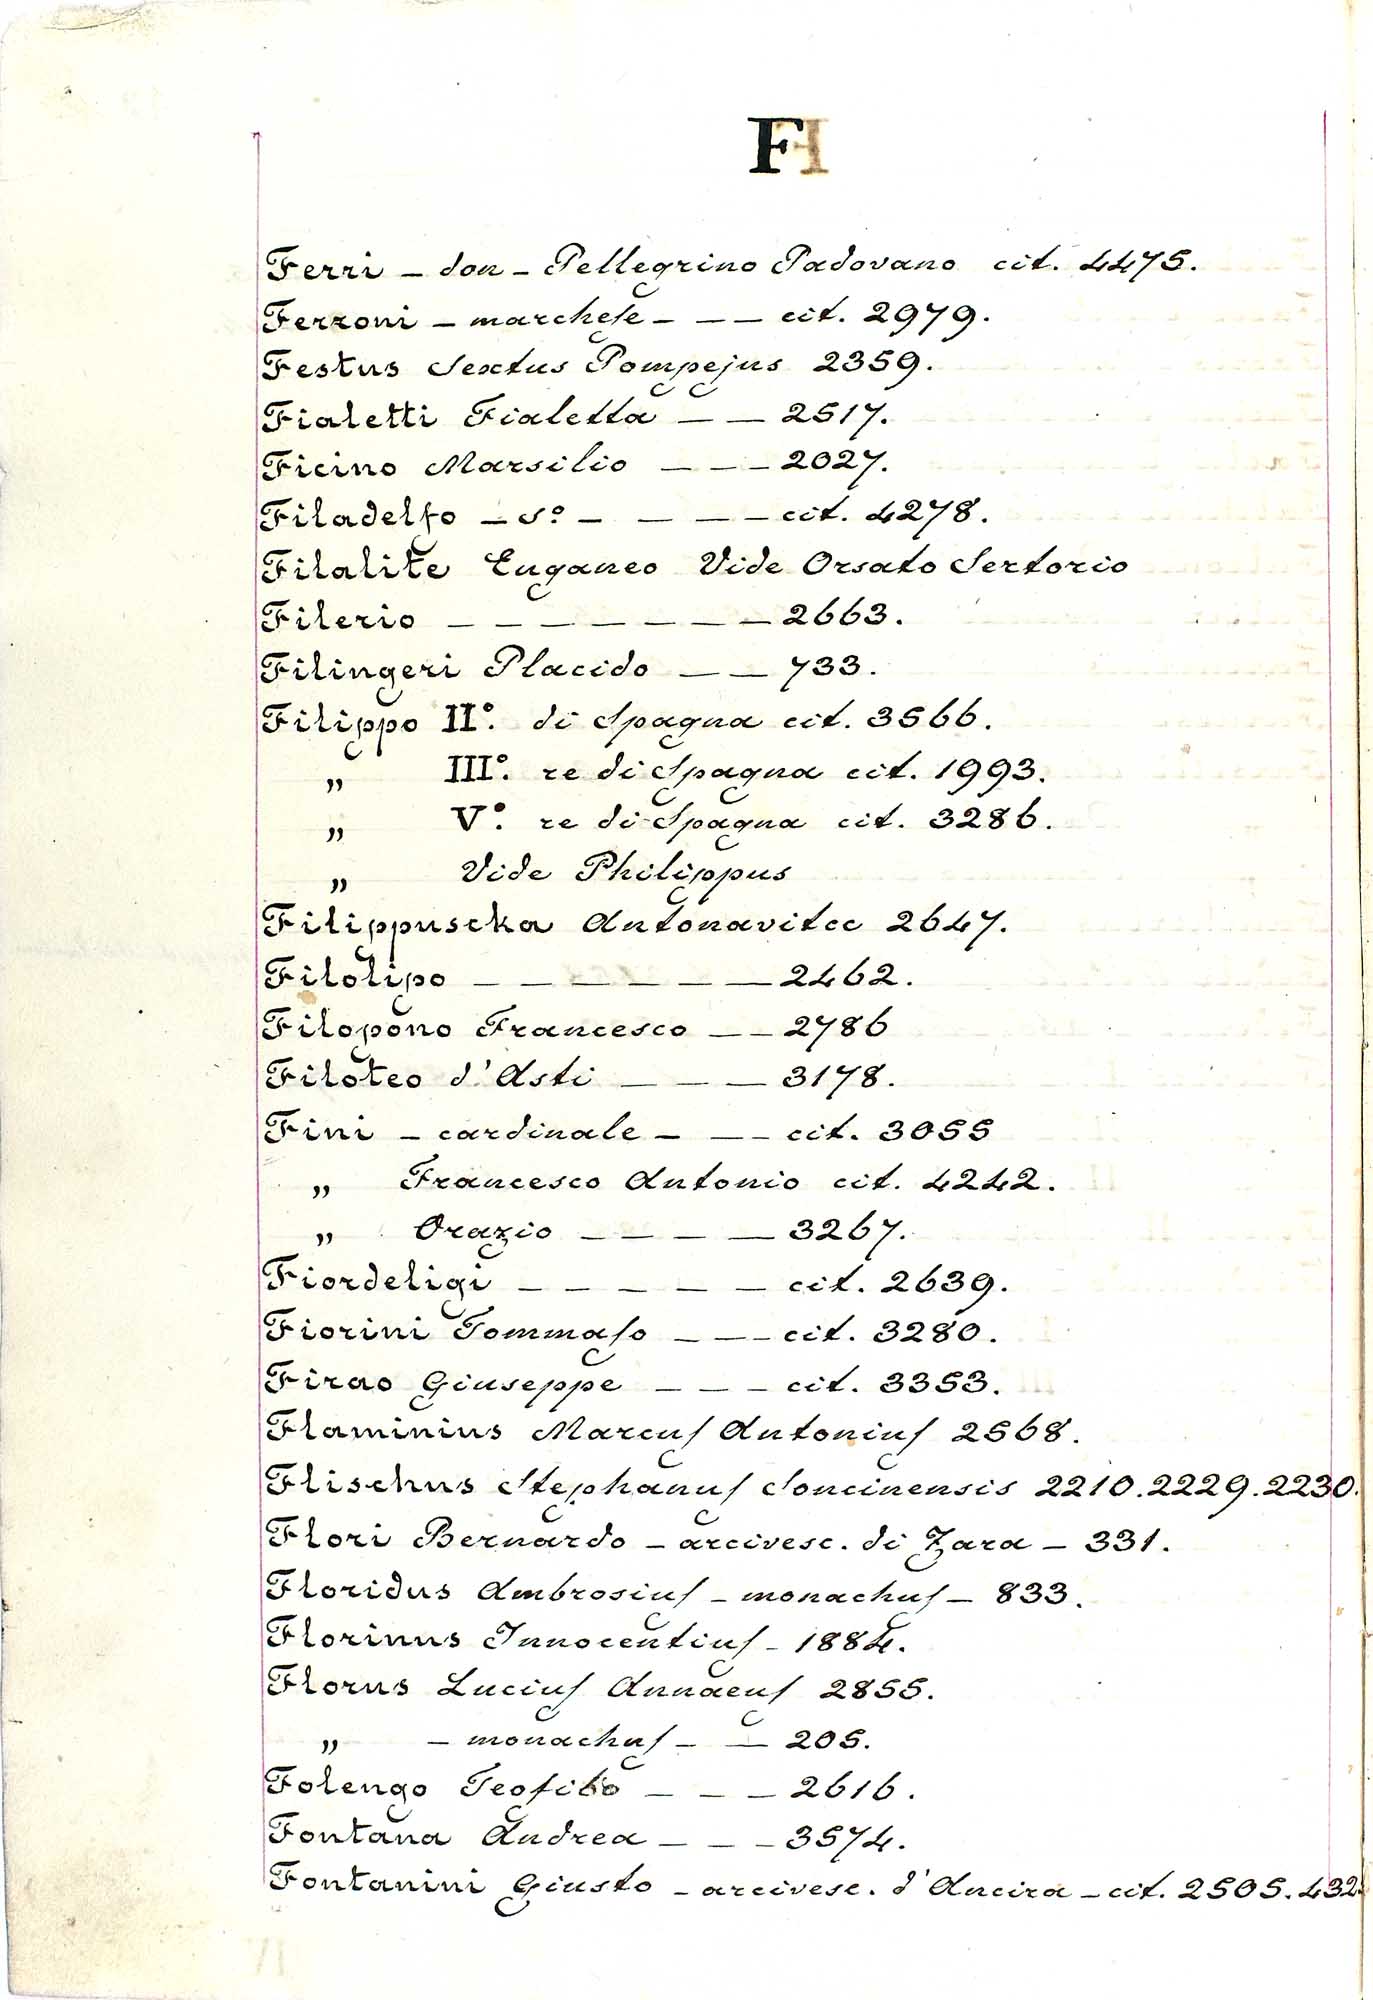 F
Ferri – don – Pellegrino Padovano cit. 4475.
Ferroni – marchese – – – cit. 2979.
Festus Sextus Pompejus 2359.
Fialetti Fialetta – – 2517.
Ficino Marsilio – – – 2027.
Filadelfo – s.º – – – – cit. 4278.
Filalite Euganeo Vide Orsato Sertorio
Filerio – – – – – – – 2663.
Filingeri Placido – – 733.
Filippo II.º di Spagna cit. 3566.
„ III.º re di Spagna cit. 1993.
„ V.º re di Spagna cit. 3286.
„ Vide Philippus
Filippuscka Antonavitcc 2647.
Filolipo – – – – – – 2462.
Filopono Francesco – – 2786
Filoteo d'Asti – – – 3178.
Fini – cardinale – – – cit. 3055
„ Francesco Antonio cit. 4242.
„ Orazio – – – – 3267.
Fiordeligi – – – – – cit. 2639.
Fiorini Tommaso – – – cit. 3280.
Firao Giuseppe – – – cit. 3353.
Flaminius Marcus Antonius 2568.
Flischus Stephanus Soncinensis 2210. 2229. 2230.
Flori Bernardo – arcivesc. di Zara – 331.
Floridus Ambrosius – monachus – 833.
Florinus Innocentius – 1884.
Florus Lucius Annaeus 2855.
„ – monachus – – 205.
Folengo Teofilo – – – 2616.
Fontana Andrea – – – 3574.
Fontanini Giusto – arcivesc. d'Ancira – cit. 2505. 432